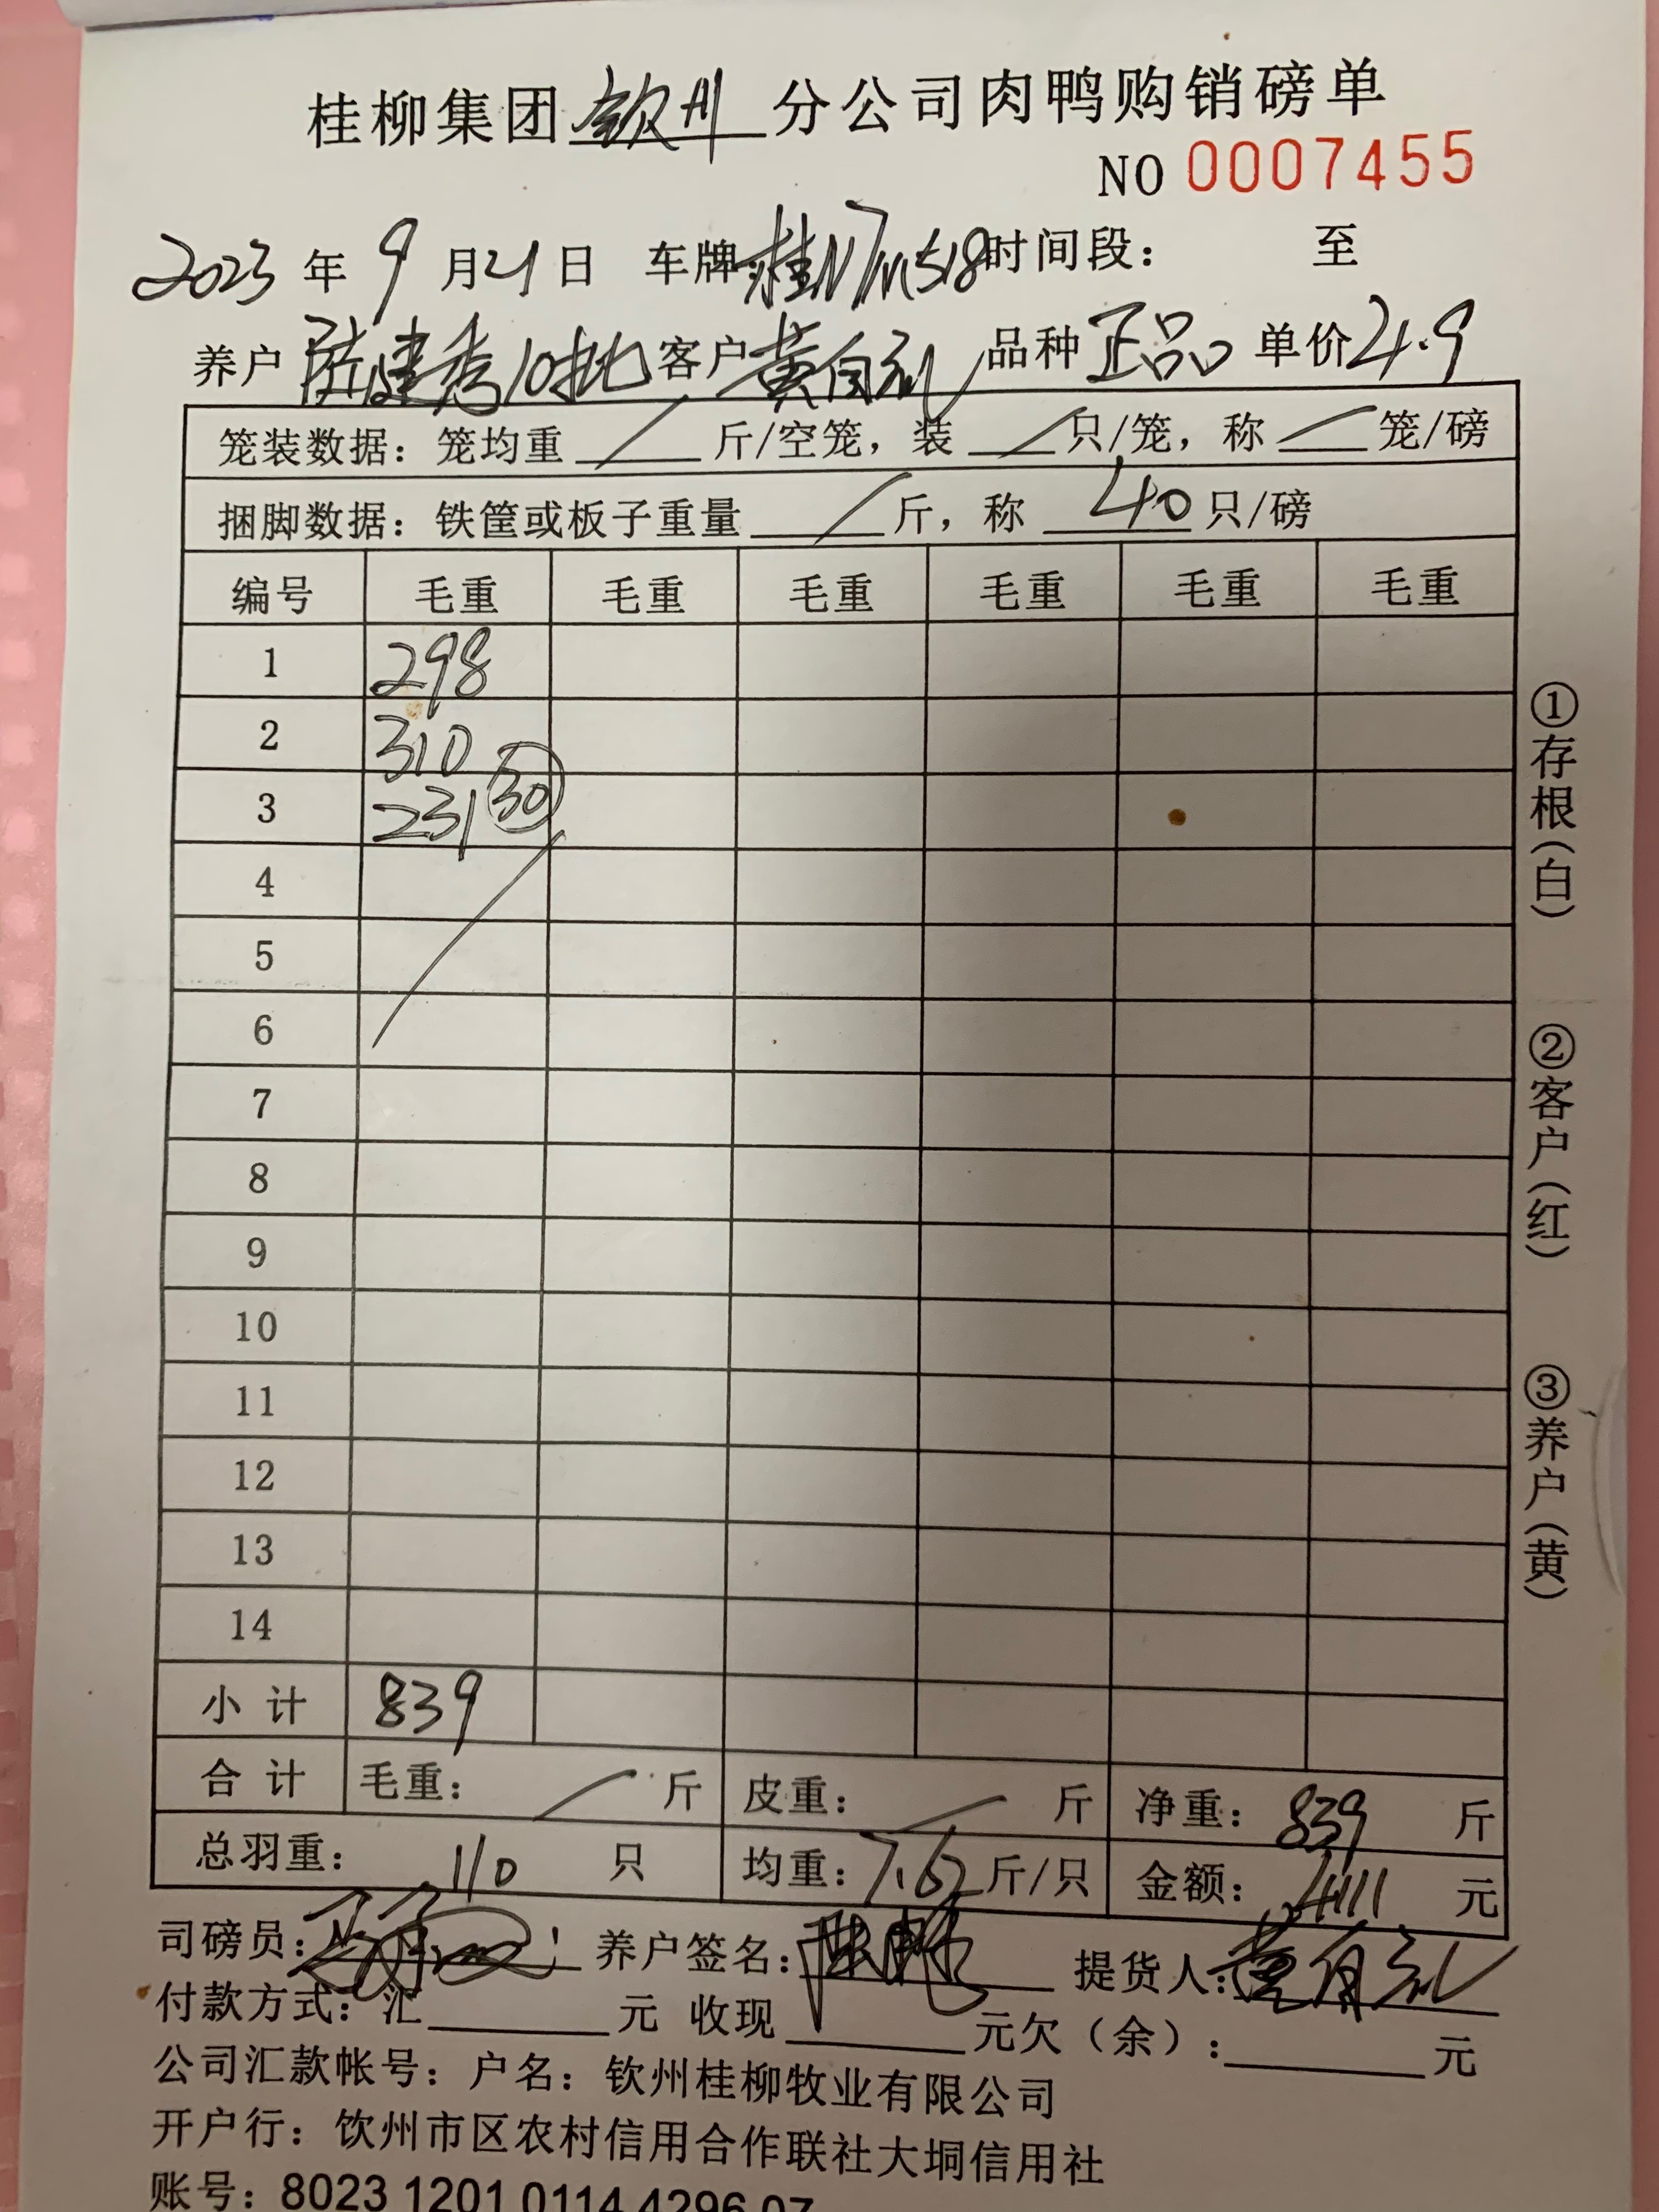 桂柳集团 钦州 分公司肉鸭购销磅单
NO 0007455
2023 年 9 月 21 日 车牌: 桂N7M518 时间段: 至
养户 陆建秀10批 客户 黄有礼 品种 正品 单价 4.9
笼装数据: 笼均重 / 斤/空笼, 装 / 只/笼, 称 / 笼/磅
捆脚数据: 铁筐或板子重量 / 斤, 称 40 只/磅
编号 毛重 毛重 毛重 毛重 毛重 毛重
1 298
2 310
3 231 30
4
5
6
7
8
9
10
11
12
13
14
小计 839
合计 毛重: / 斤 皮重: / 斤 净重: 839 斤
总羽重: 110 只 均重: 7.62 斤/只 金额: 4111 元
司磅员: 养户签名: 提货人: 黄有礼
付款方式: 汇 元 收现 元欠(余): 元
公司汇款帐号: 户名: 钦州桂柳牧业有限公司
开户行: 钦州市区农村信用合作联社大垌信用社
账号: 8023 1201 0114 4296 07
①存根(白)
②客户(红)
③养户(黄)